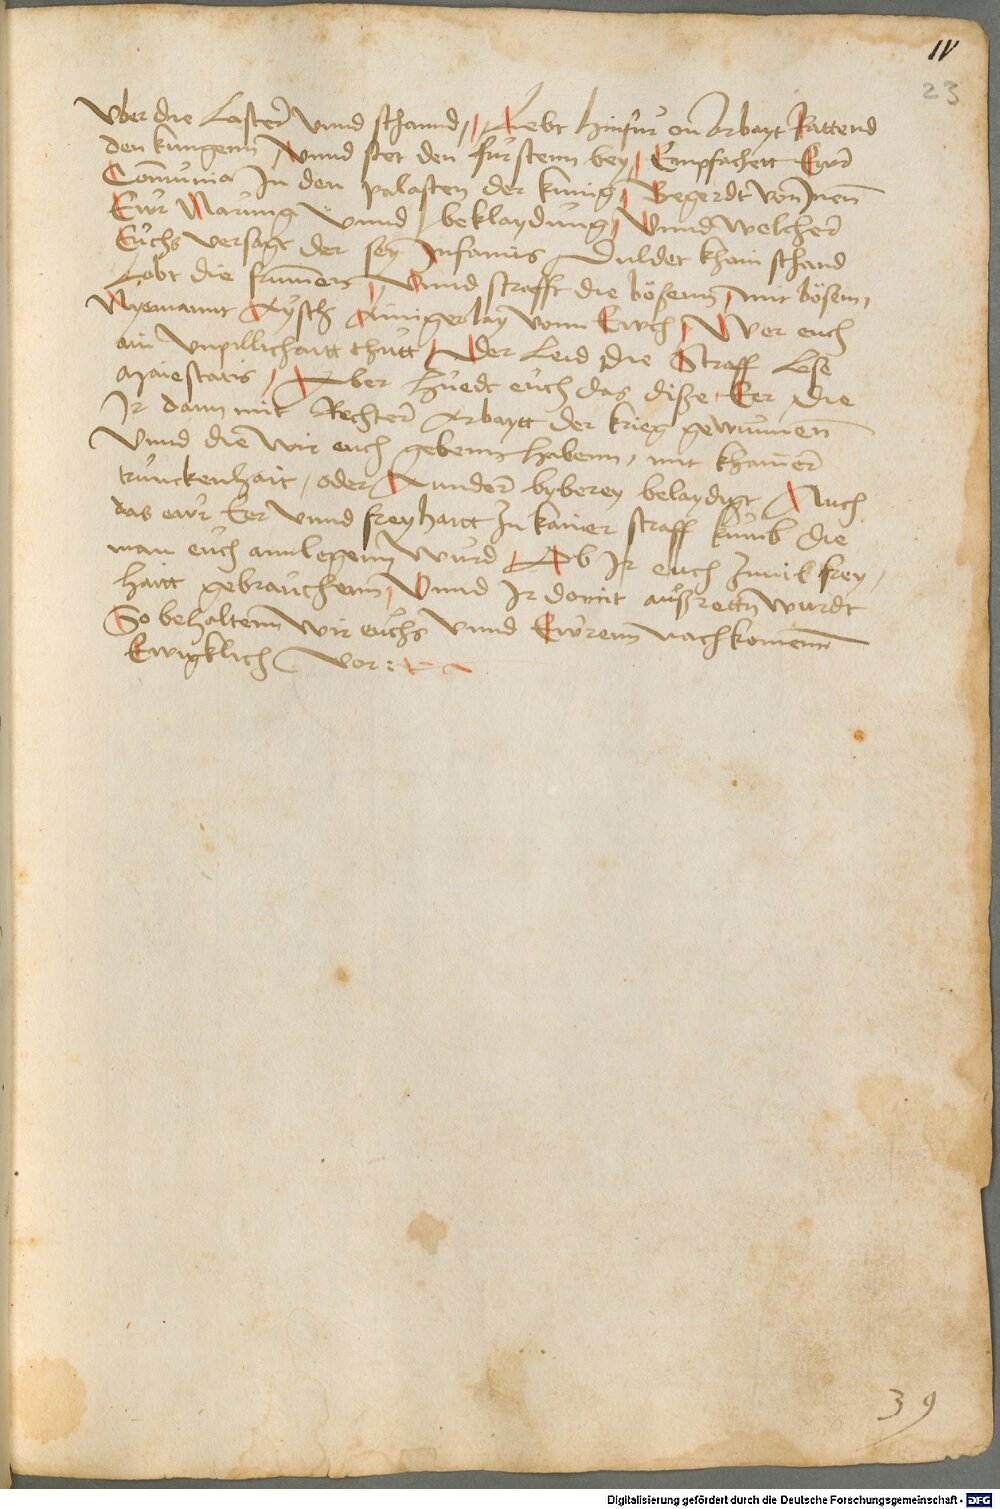 IV
23
Vber die Laster vnnd schannd, Lebt hinfur on Arbayt Rattend
den kungenn Vnnd stet den furstenn bey, Empfachett Ewr
Comunia In den palasten der kunig, Begerdt von Inen
Ewr Narung vnnd beklaydung, Vnnd welcher
Euchs versagt der sey Infamis Duldet khain schand
Lobt die frumen, Vnnd strafft die bösenn, mit bösem,
Nyemannt Aysch Ainigerlay vonn Ewch, Wer euch
ain Vnpillichaitt thutt, Der Leid die Straff Lese
Maiestatis, Aber huedt euch das dise Eer die
Ir dann mit Rechter Arbaytt der krieg gewunnen
Vnnd die wir euch gebenn habenn, mit khainer
trunckenhait, oder Annder byberey belaydigt Auch
das ewr Eer Vnnd freyhaitt In kainer straff kumb die
man euch annlegenn wurd, Ob Ir euch Zuuil frey,
haitt gebrauchenn, Vnnd Ir domit außrettn wurdt
So behaltenn wir euchs vnnd Ewrenn nachkomenn
Ewigklich vor :
39
Digitalisierung gefördert durch die Deutsche Forschungsgemeinschaft - DFG